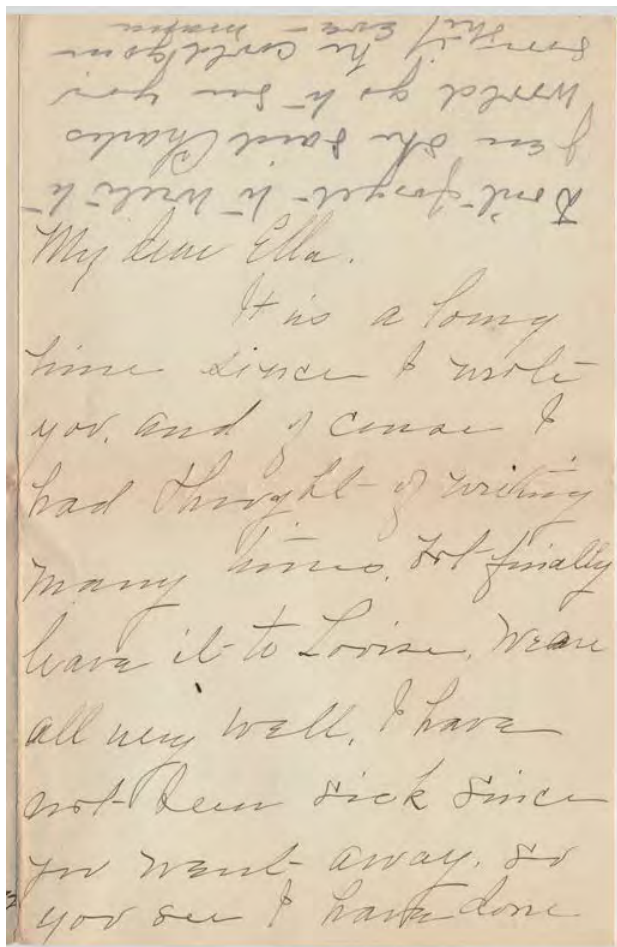 Don't forget to write to
Jen She said Charles
would go to see you
if he could
Eva - mama
My dear Ella.
It is a long
time since I wrote
you, and of course I
had thought of writing
many times, but finally
leave it to Louise. We are
all very well, I have
not been sick since
you went away. so
you see I have done